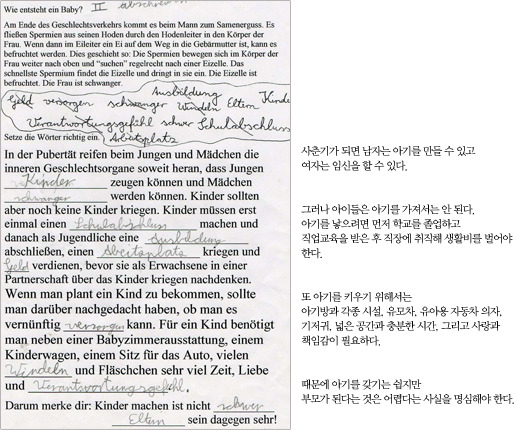 Wie entsteht ein Baby? II abschreiben
Am Ende des Geschlechtsverkehrs kommt es beim Mann zum Samenerguss. Es
fließen Spermien aus seinen Hoden durch den Hodenleiter in den Körper der
Frau. Wenn dann im Eileiter ein Ei auf dem Weg in die Gebärmutter ist, kann es
befruchtet werden. Dies geschieht so: Die Spermien bewegen sich im Körper der
Frau weiter nach oben und "suchen" regelrecht nach einer Eizelle. Das
schnellste Spermium findet die Eizelle und dringt in sie ein. Die Eizelle ist
befruchtet. Die Frau ist schwanger.
Ausbildung
Geld versorgen schwanger Windeln Eltern Kinder
Verantwortungsgefühl schwer Schulabschluss
Setze die Wörter richtig ein. Arbeitsplatz
In der Pubertät reifen beim Jungen und Mädchen die
inneren Geschlechtsorgane soweit heran, dass Jungen
Kinder zeugen können und Mädchen
schwanger werden können. Kinder sollten
aber noch keine Kinder kriegen. Kinder müssen erst
einmal einen Schulabschluss machen und
danach als Jugendliche eine Ausbildung
abschließen, einen Abeitsplatz kriegen und
Geld verdienen, bevor sie als Erwachsene in einer
Partnerschaft über das Kinder kriegen nachdenken.
Wenn man plant ein Kind zu bekommen, sollte
man darüber nachgedacht haben, ob man es
vernünftig versorgen kann. Für ein Kind benötigt
man neben einer Babyzimmerausstattung, einem
Kinderwagen, einem Sitz für das Auto, vielen
Windeln und Fläschchen sehr viel Zeit, Liebe
und Verantwortungsgefühl.
Darum merke dir: Kinder machen ist nicht schwer
Eltern sein dagegen sehr!
사춘기가 되면 남자는 아기를 만들 수 있고
여자는 임신을 할 수 있다.
그러나 아이들은 아기를 가져서는 안 된다.
아기를 낳으려면 먼저 학교를 졸업하고
직업교육을 받은 후 직장에 취직해 생활비를 벌어야
한다.
또 아기를 키우기 위해서는
아기방과 각종 시설, 유모차, 유아용 자동차 의자,
기저귀, 넓은 공간과 충분한 시간, 그리고 사랑과
책임감이 필요하다.
때문에 아기를 갖기는 쉽지만
부모가 된다는 것은 어렵다는 사실을 명심해야 한다.